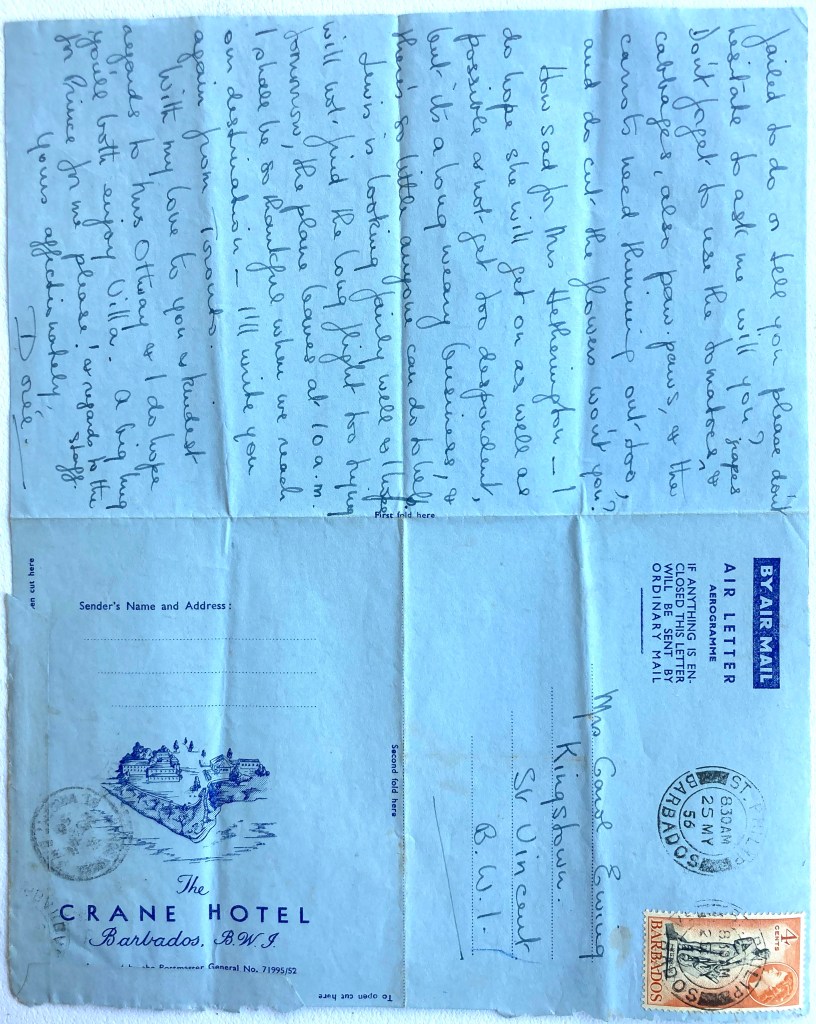 failed to do or tell you please don't
hesitate to ask me will you?
Don't forget to use the tomatoes, grapes
cabbages, also paw-paws, & the
carrots need thinning out too,
and do cut the flowers won't you?
How sad for Mrs Hetherington — I
do hope she will get on as well as
possible & not get too despondent,
but it's a long weary business, &
there's so little anyone can do to help.
Lewis is looking fairly well & I hope
will not find the long flight too trying
tomorrow, the plane leaves at 10 a.m.
I shall be so thankful when we reach
our destination — I'll write you
again from
With my love to you & kindest
regards to Mrs Ottway & I do hope
you'll both enjoy Villa. A big hug
for Prince for me please! & regards to the
staff.
Yours affectionately,
First fold here
BY AIR MAIL
AIR LETTER
AEROGRAMME
IF ANYTHING IS EN-
CLOSED THIS LETTER
WILL BE SENT BY
ORDINARY MAIL
ST. PHILIP
8.30AM
25 MY
56
BARBADOS
4
CENTS
BARBADOS
Mrs Carol Ewing
Kingstown.
St Vincent
B.W.I.
Second fold here
Sender's Name and Address:
The
CRANE HOTEL
Barbados, B.W.I.
Postmaster General No. 71995/52
To open cut here
en cut here